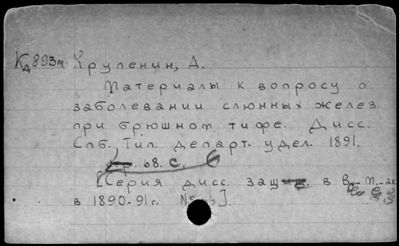 Кд 893м Крупенин, А.
Материалы к вопросу о
заболевании слюнных желез
при брюшном тифе. Дисс.
Спб. Тип. департ. удел. 1891.
68. с.
[Серия дисс. защищ. в
в 1890-91 г.